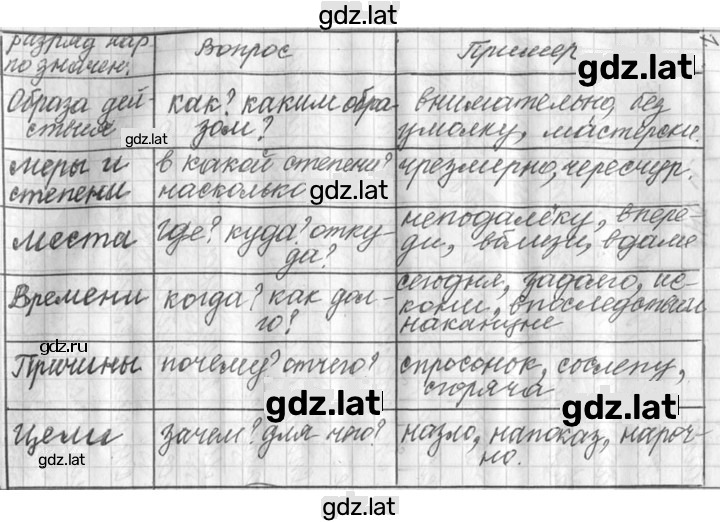 gdz.lat
разряд нар. Вопрос Пример
по значен. gdz.lat
Образа дей- как? каким обра- внимательно, без
ствия gdz.lat зом? умолку, мастерски.
меры и в какой степени? чрезмерно, чересчур.
степени насколько gdz.lat
места где? куда? отку- неподалёку, впере-
да? ди, вблизи, вдале
Времени когда? как дол- сегодня, задолго, ис-
го? кони, впоследствии
накануне
gdz.ru
Причины почему? отчего? спросонок, сослепу,
сгоряча
gdz.lat gdz.lat
Цели зачем? для чего? назло, напоказ, нароч-
gdz.lat но.
gdz.lat